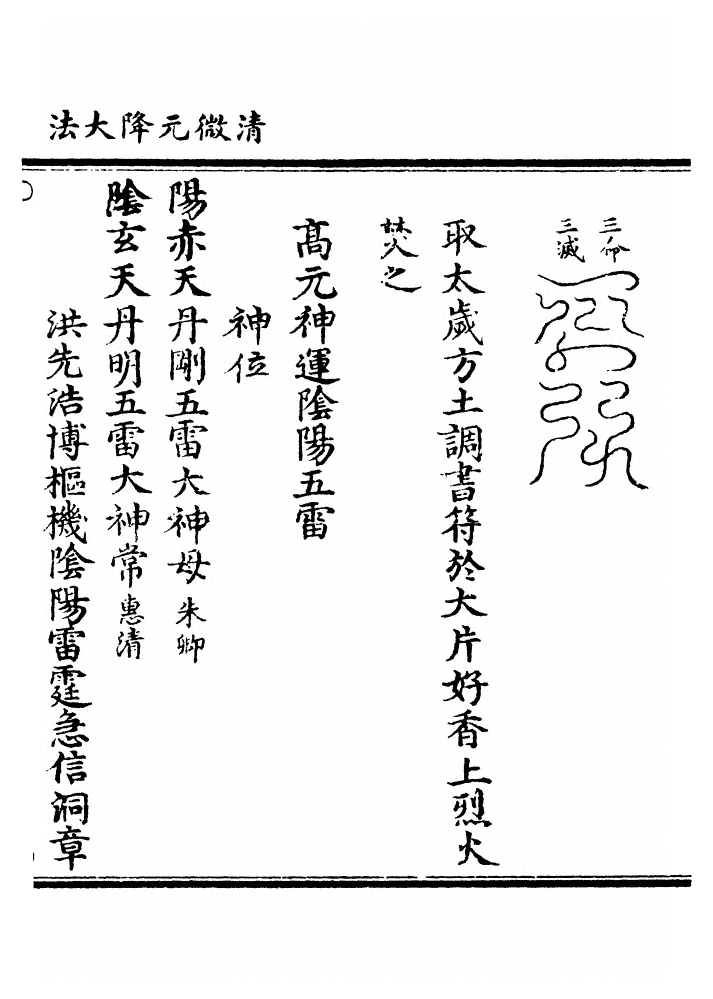 清微元降大法
三命
三滅
取太歲方土調書符於大片好香上烈火
焚之
高元神運陰陽五雷
神位
陽赤天丹剛五雷大神母朱卿
陰玄天丹明五雷大神常惠清
洪先浩博樞機陰陽雷霆急信洞章